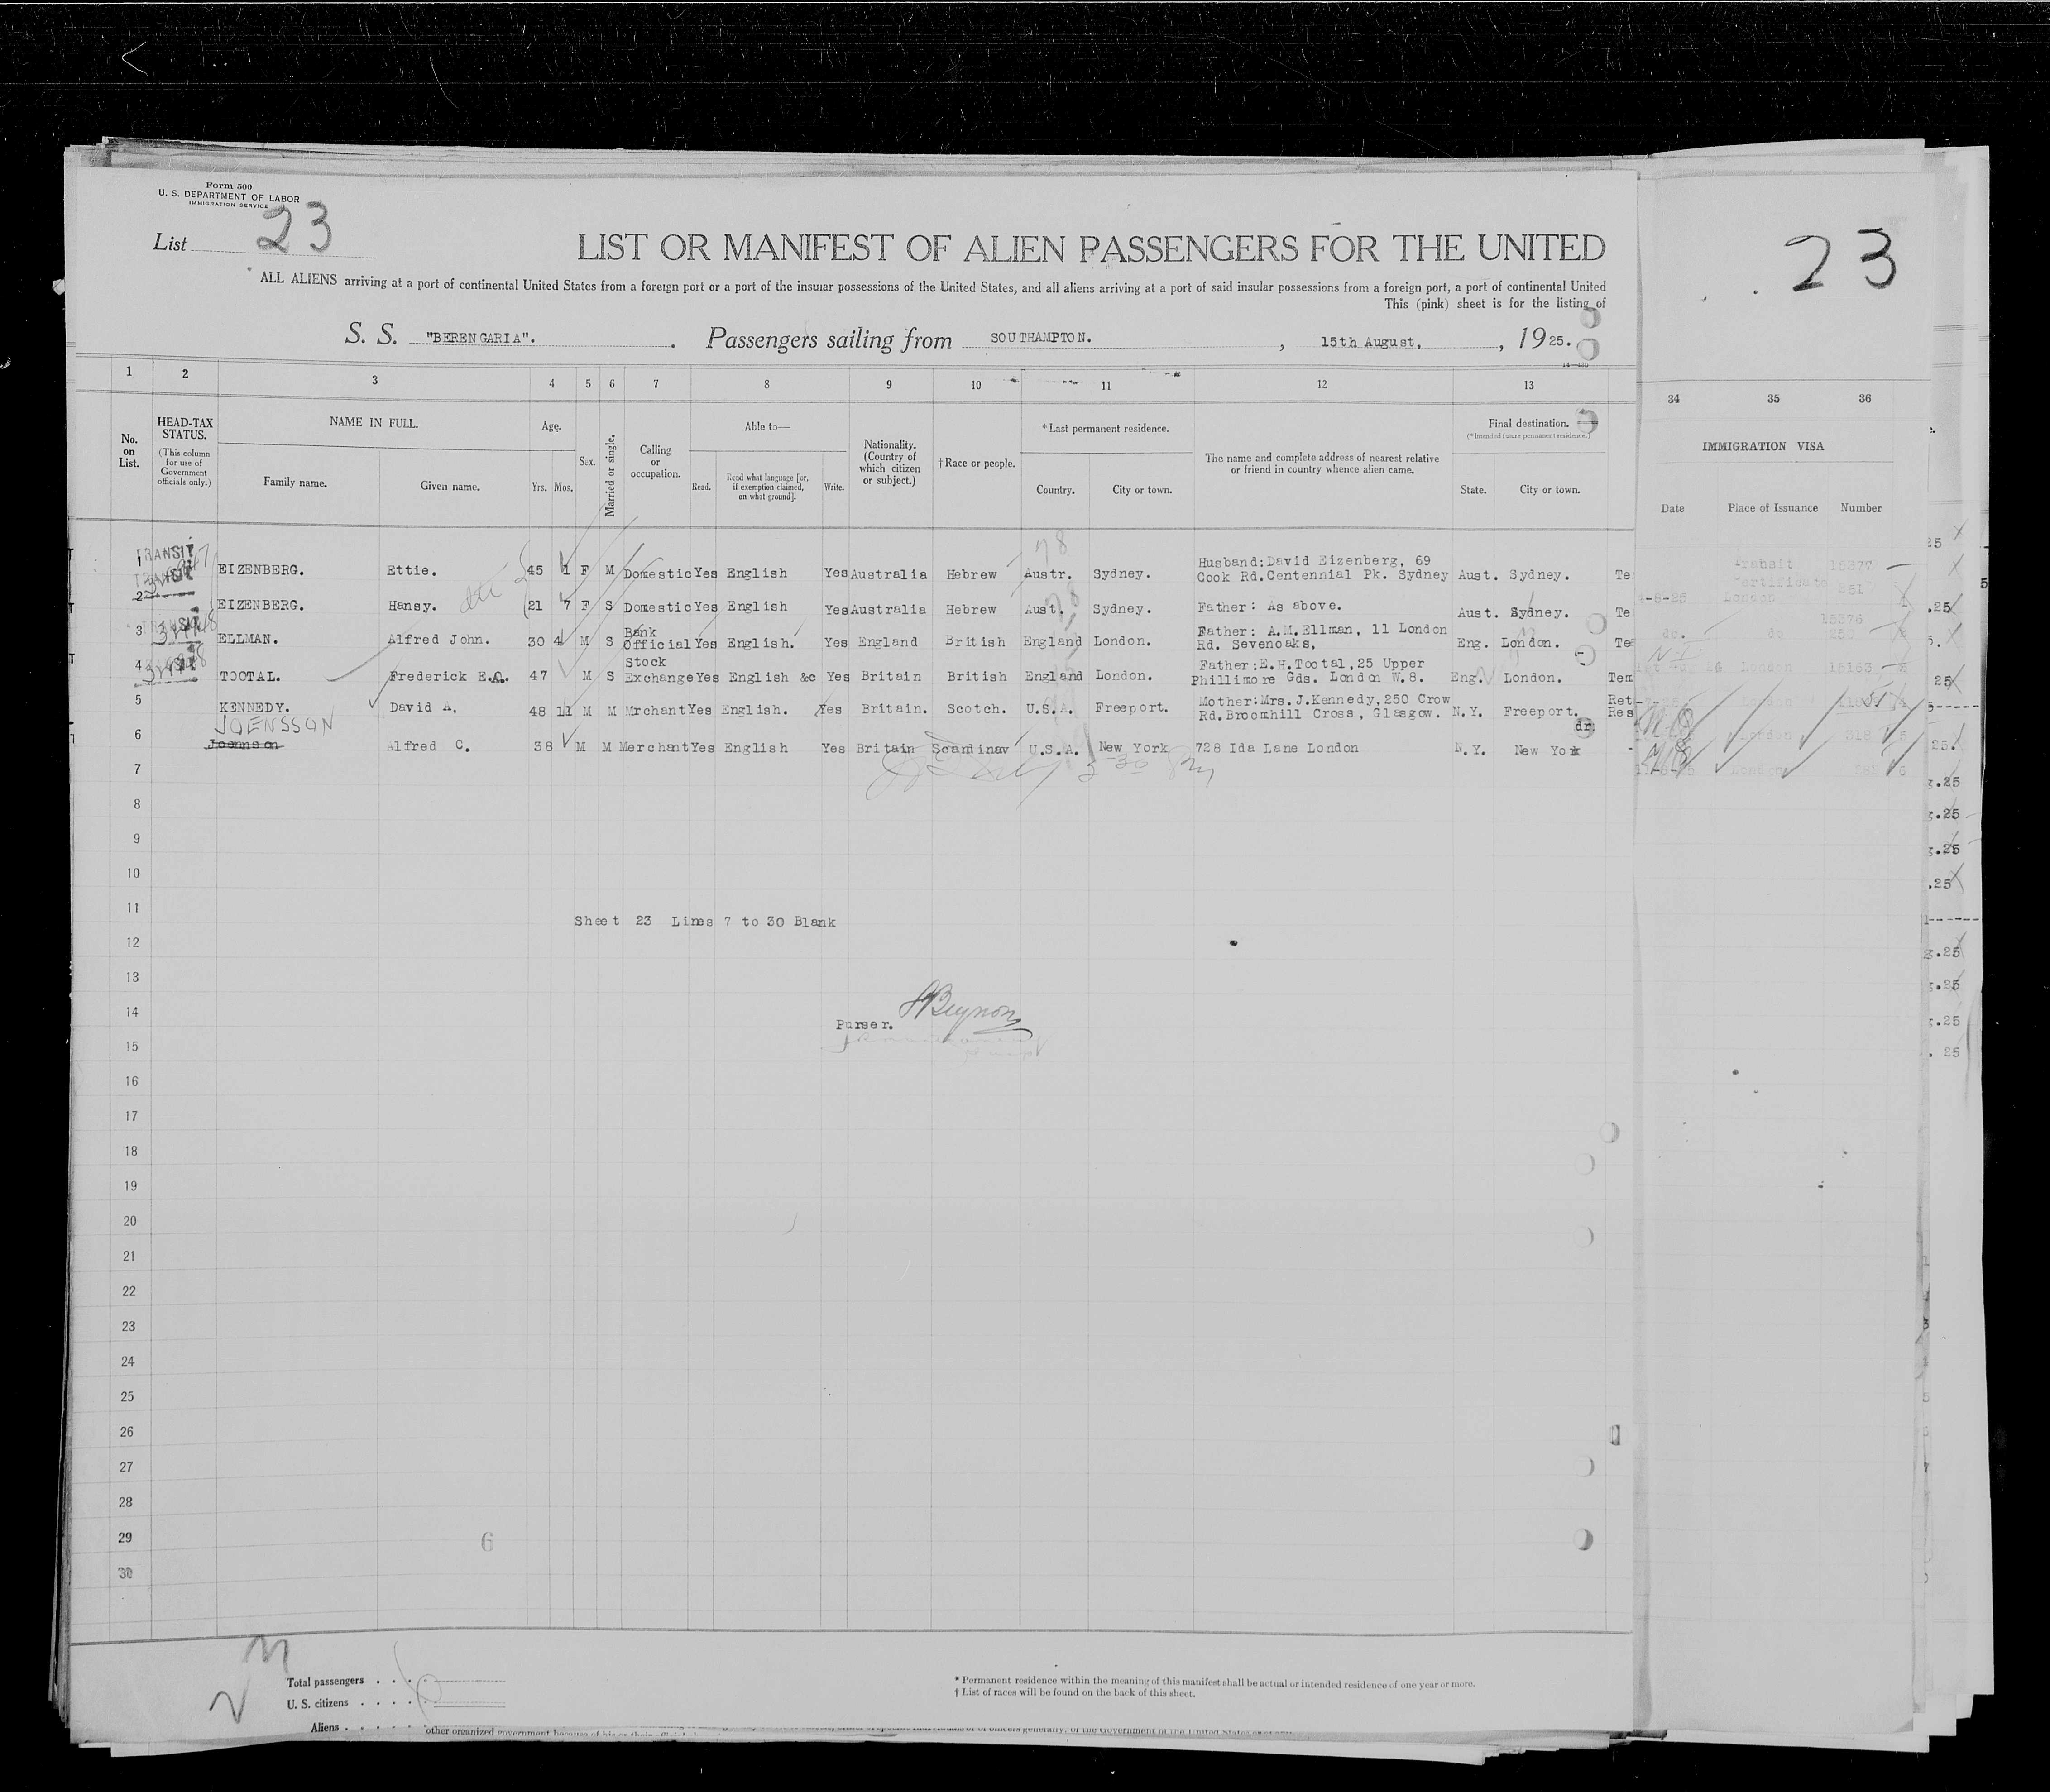 Form 500
U. S. DEPARTMENT OF LABOR
IMMIGRATION SERVICE
List 23
LIST OR MANIFEST OF ALIEN PASSENGERS FOR THE UNITED
ALL ALIENS arriving at a port of continental United States from a foreign port or a port of the insular possessions of the United States, and all aliens arriving at a port of said insular possessions from a foreign port, a port of continental United
This (pink) sheet is for the listing of
S. S. "BERENGARIA". Passengers sailing from SOUTHAMPTON. , 15th August, , 19 25.
23
1 2 3 4 5 6 7 8 9 10 11 12 13 34 35 36
No. on List.
HEAD-TAX STATUS.
(This column for use of Government officials only.)
NAME IN FULL.
Family name. Given name.
Age.
Yrs. Mos.
Sex.
Married or single.
Calling or occupation.
Able to—
Read. Read what language [or, if exemption claimed, on what ground]. Write.
Nationality. (Country of which citizen or subject.)
†Race or people.
*Last permanent residence.
Country. City or town.
The name and complete address of nearest relative or friend in country whence alien came.
Final destination.
(*Intended future permanent residence.)
State. City or town.
IMMIGRATION VISA
Date Place of Issuance Number
TRANSIT
1 EIZENBERG. Ettie. 45 1 F M Domestic Yes English Yes Australia Hebrew Austr. Sydney. Husband: David Eizenberg, 69 Cook Rd. Centennial Pk. Sydney Aust. Sydney. Te
2 EIZENBERG. Hansy. 21 7 F S Domestic Yes English Yes Australia Hebrew Aust. Sydney. Father: As above. Aust. Sydney. Te
3 ELLMAN. Alfred John. 30 4 M S Bank Official Yes English. Yes England British England London. Father: A.M.Ellman, 11 London Rd. Sevenoaks, Eng. London. Te
4 TOOTAL. Frederick E.O. 47 M S Stock Exchange Yes English &c Yes Britain British England London. Father: E.H.Tootal, 25 Upper Phillimore Gds. London W.8. Eng. London. Tem
5 KENNEDY. David A, 48 11 M M Mrchant Yes English. Yes Britain. Scotch. U.S.A. Freeport. Mother: Mrs. J.Kennedy, 250 Crow Rd. Broomhill Cross, Glasgow. N.Y. Freeport. Ret Res
JOENSSON
6 Joenson Alfred C. 38 M M Merchant Yes English Yes Britain Scandinav U.S.A. New York 728 Ida Lane London N.Y. New York
7
8
9
10
11
Sheet 23 Lines 7 to 30 Blank
12
13
14
Purser. Beynon
15
16
17
18
19
20
21
22
23
24
25
26
27
28
29
6
30
Total passengers
U. S. citizens
Aliens
* Permanent residence within the meaning of this manifest shall be actual or intended residence of one year or more.
† List of races will be found on the back of this sheet.